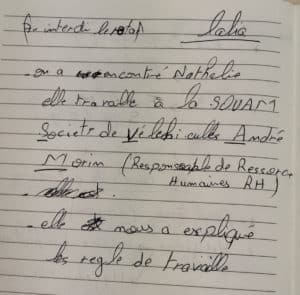 lalia
- on a rencontré Nathalie
elle travalle à la SOVAM
Societr de Vélehiculles André
Morin (Responsable de Ressorce
Humaines RH)
- elle nous a expliqué
les regle de travaille